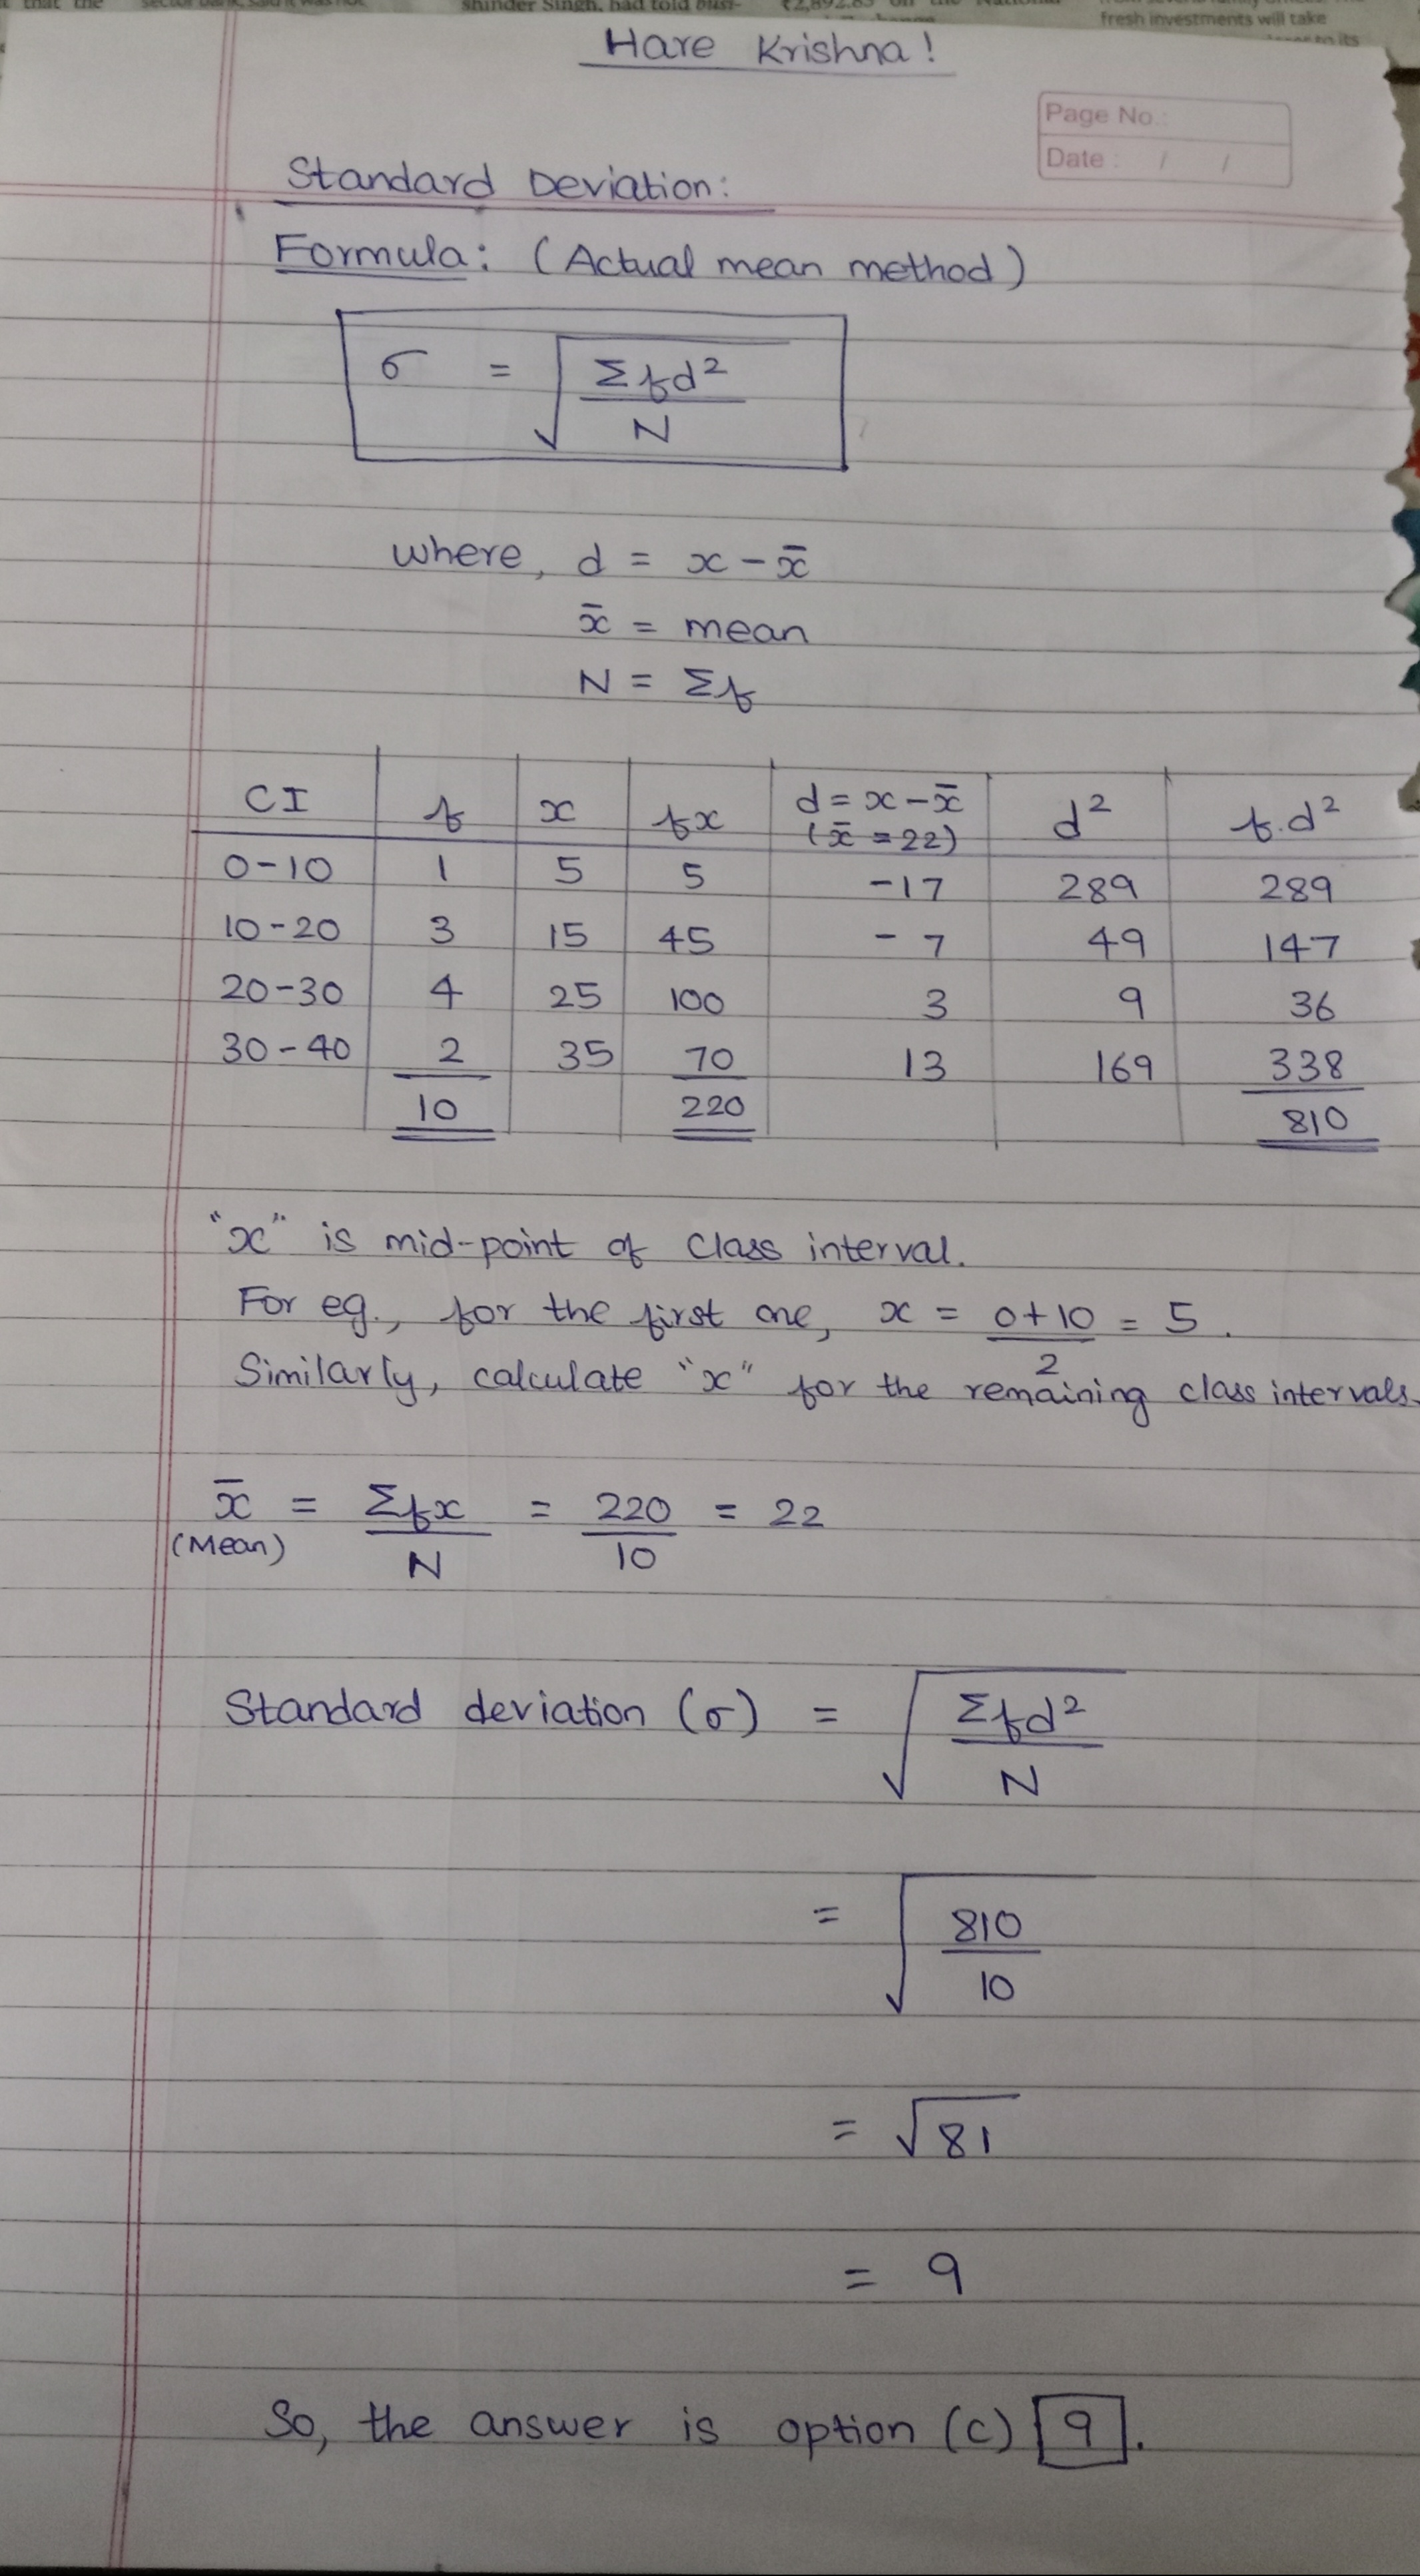 that the
shinder Singh, had told busi-
fresh investments will take
Hare Krishna!
Page No.:
Date : / /
Standard Deviation:
Formula: (Actual mean method)
σ = √ Σfd²
N
where, d = x - x̄
x̄ = mean
N = Σf
CI f x fx d = x - x̄ (x̄ = 22) d² f.d²
0-10 1 5 5 -17 289 289
10-20 3 15 45 -7 49 147
20-30 4 25 100 3 9 36
30-40 2 35 70 13 169 338
10 220 810
"x" is mid-point of class interval.
For eg., for the first one, x = 0+10 = 5.
2
Similarly, calculate "x" for the remaining class intervals.
x̄ = Σfx = 220 = 22
(Mean) N 10
Standard deviation (σ) = √ Σfd²
N
= √ 810
10
= √81
= 9
So, the answer is option (c) 9.